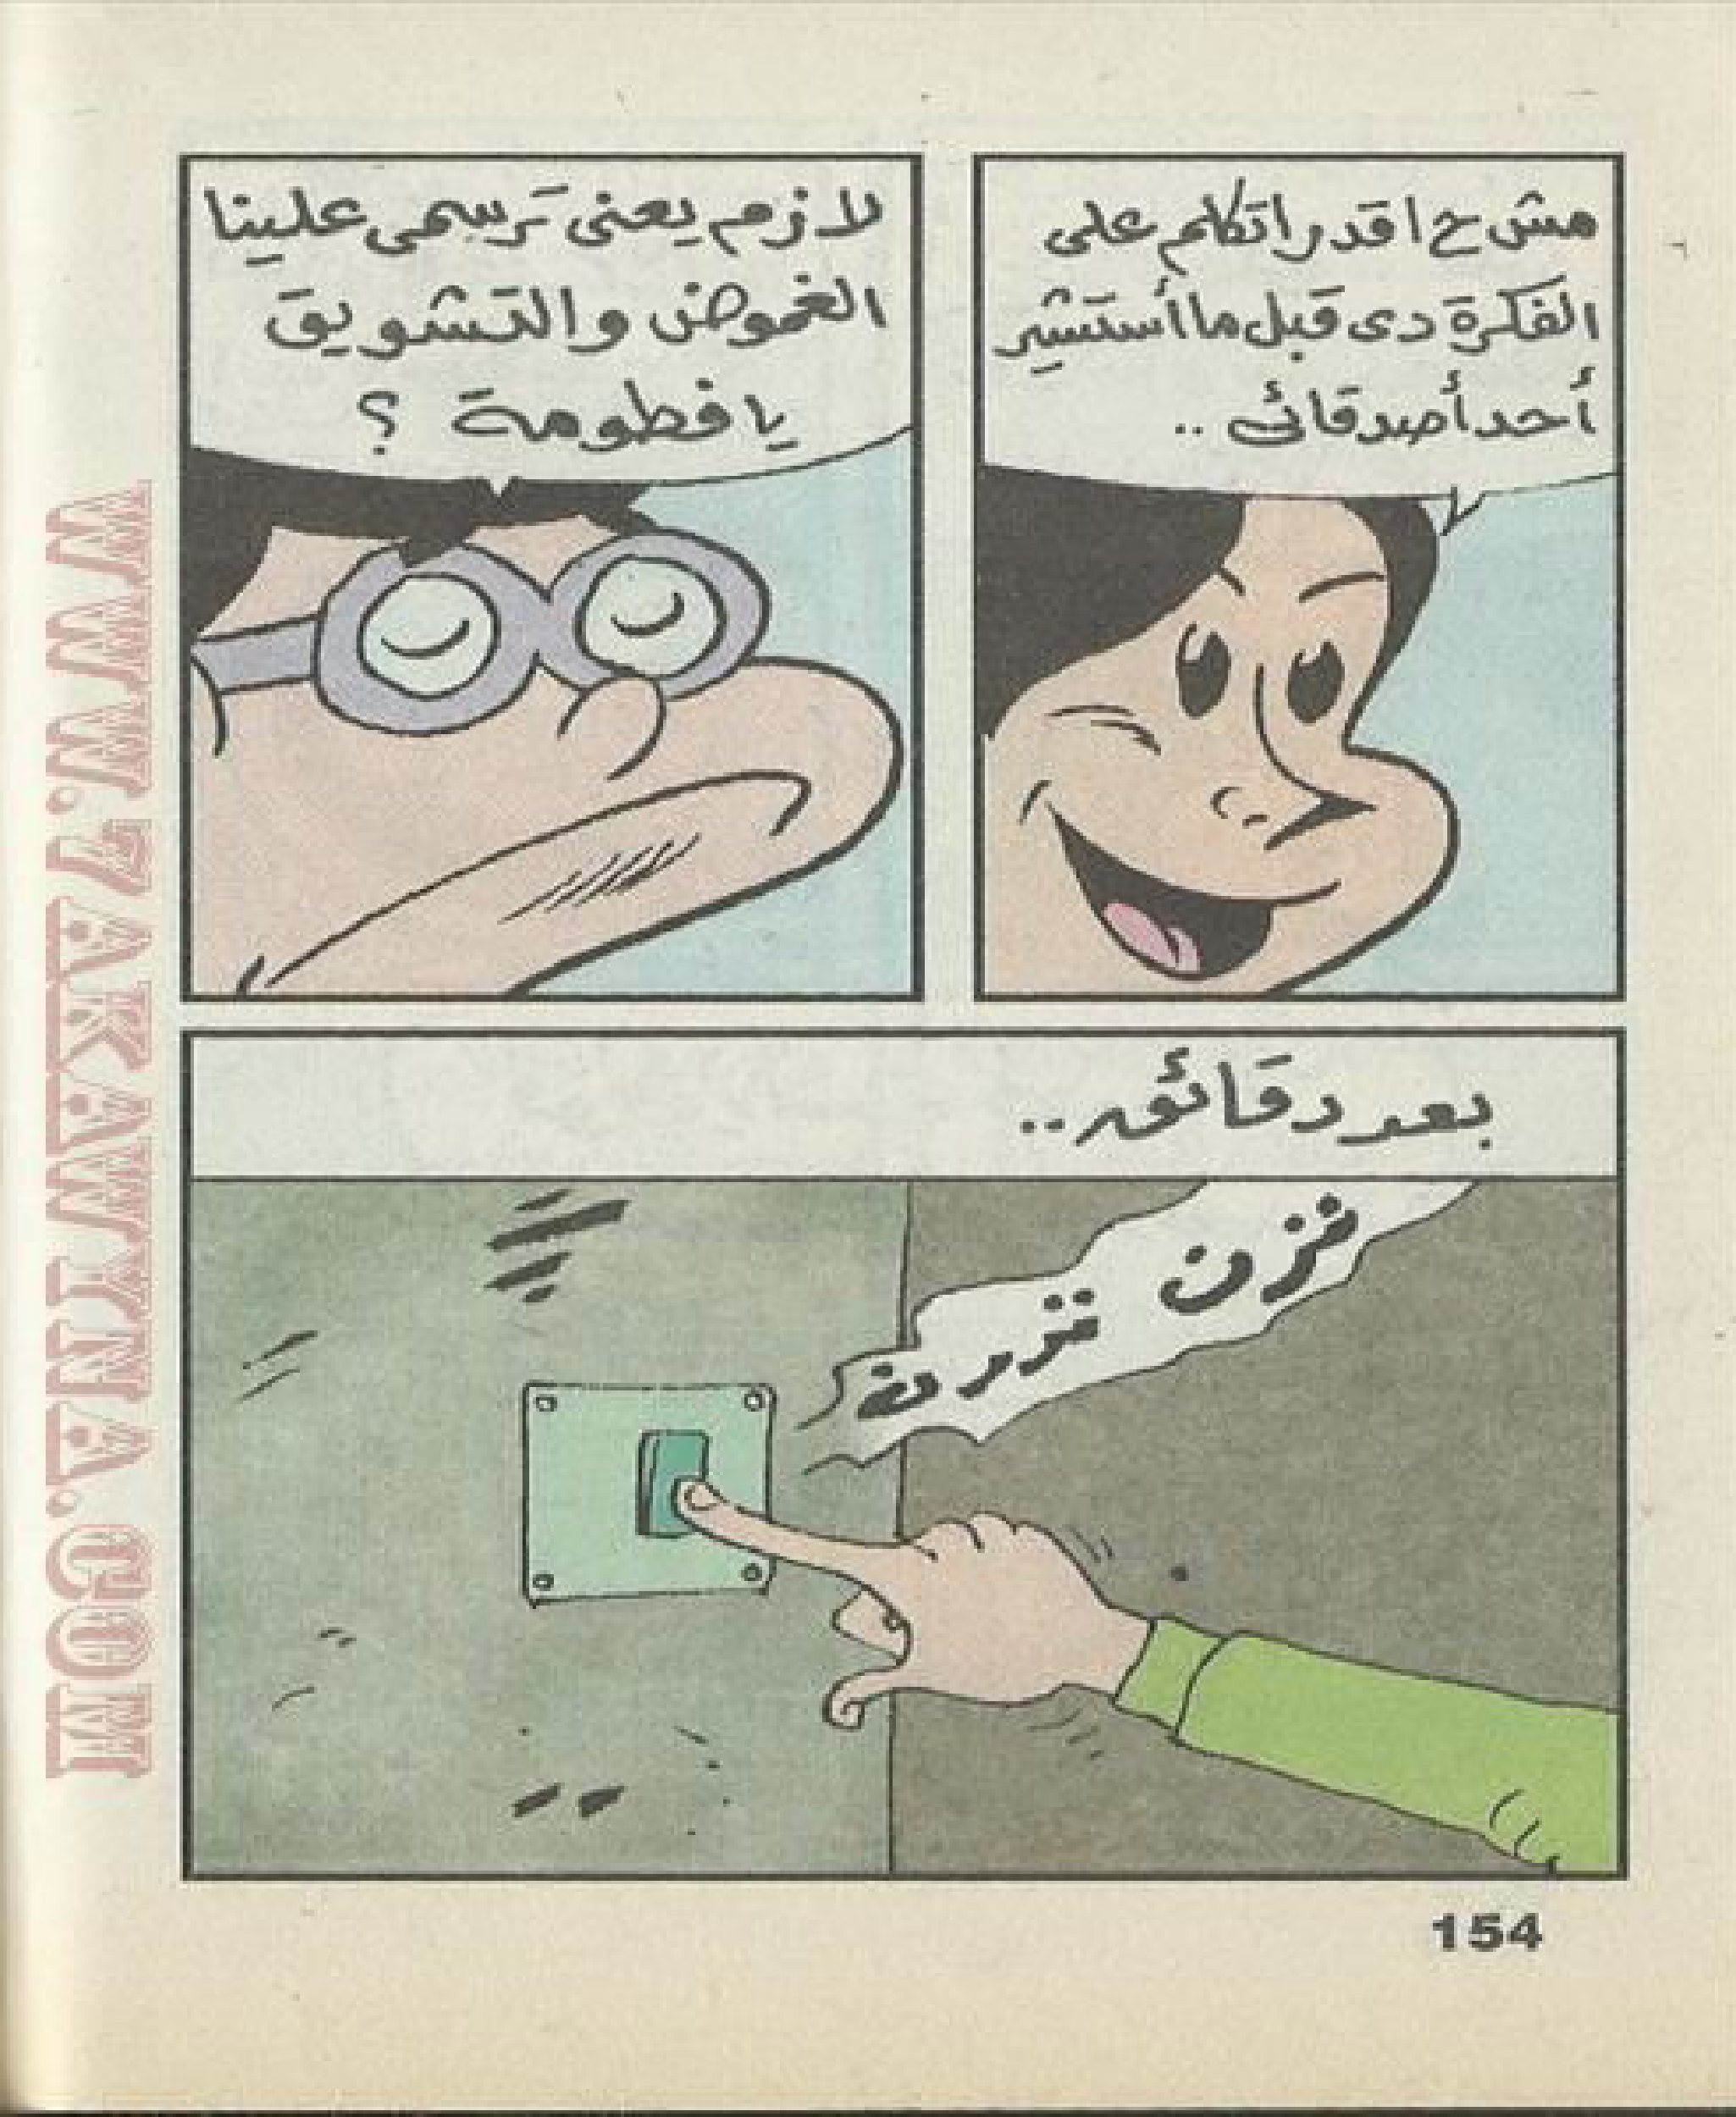 مش ح اقدر اتكلم على
الفكرة دى قبل ما أستشير
أحد أصدقائى ..
لازم يعنى ترسمى علينا
الغموض والتشويق
يا فطومة ؟
بعد دقائق ..
تزن تررن
154
WWW.7AKAWITNA.COM